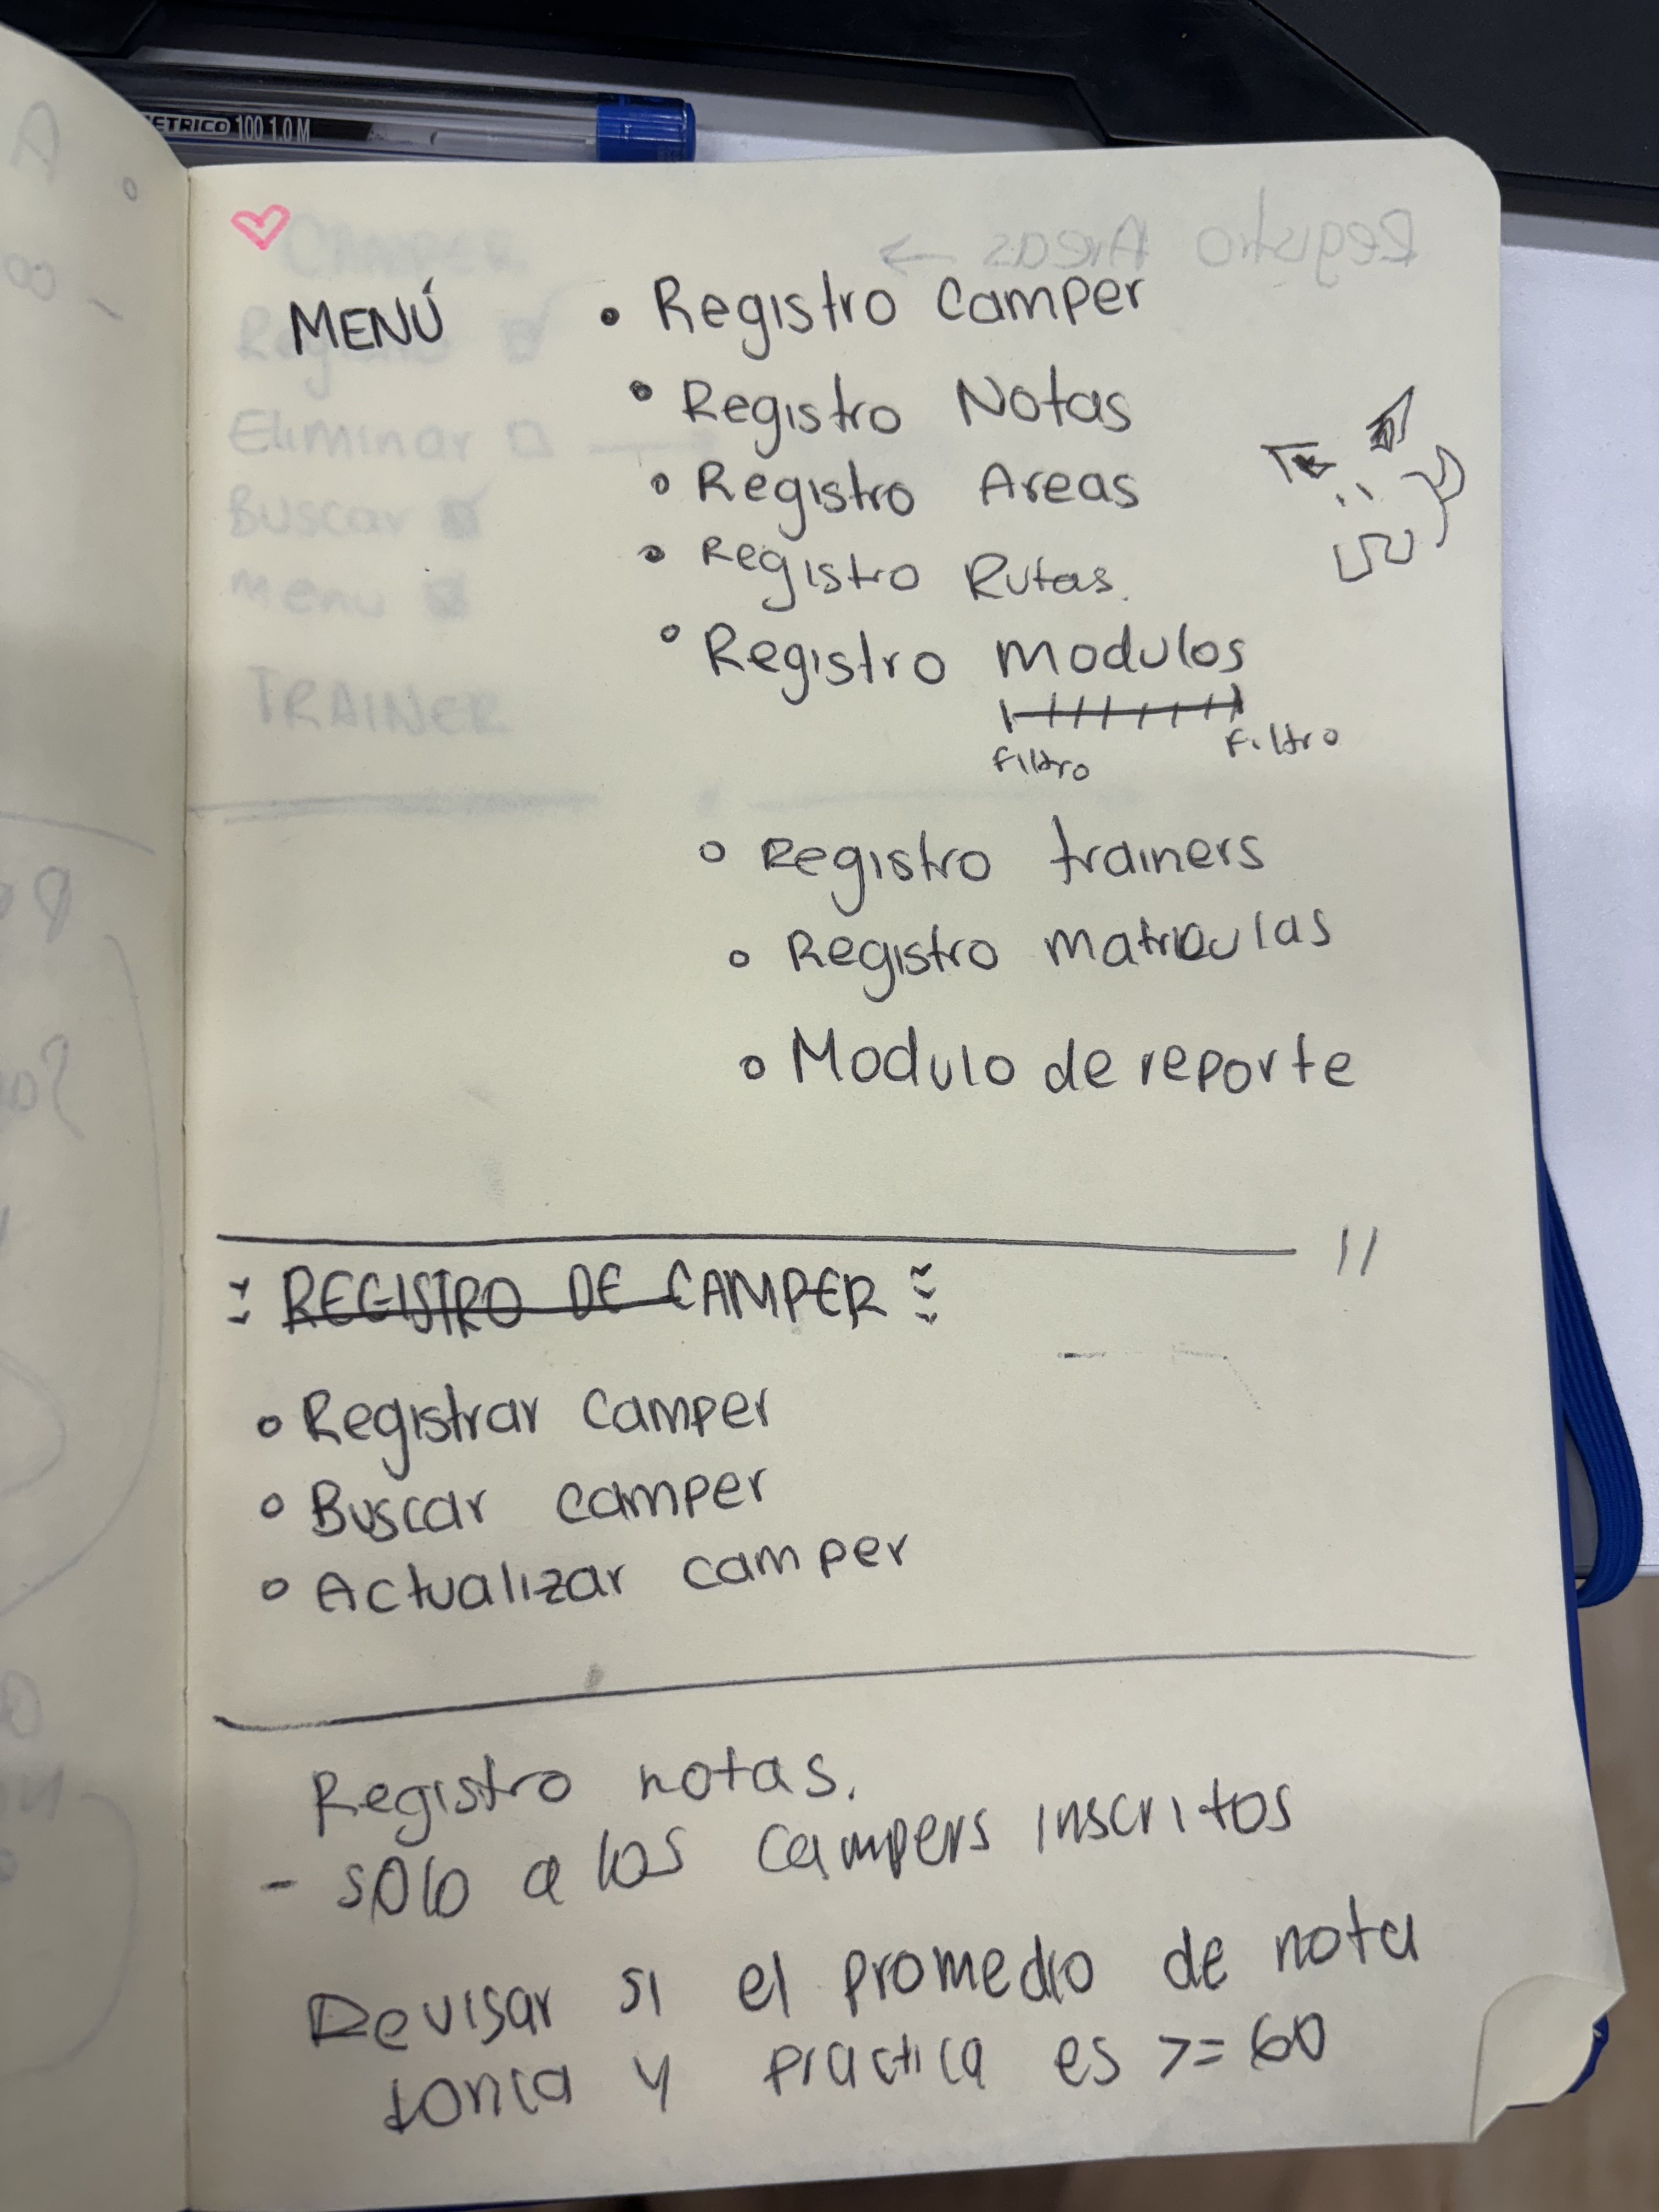 ETRICO 100 1.0 M
Registro Areas →
CAMPER
MENÚ
• Registro Camper
• Registro Notas
Eliminar
• Registro Areas
Buscar
• Registro Rutas.
menu
• Registro modulos
filtro
filtro
TRAINER
• Registro trainers
• Registro matriculas
• Modulo de reporte
REGISTRO DE CAMPER
• Registrar camper
• Buscar camper
• Actualizar camper
Registro notas.
- solo a los campers inscritos
Revisar si el promedio de nota
y practica es >= 60